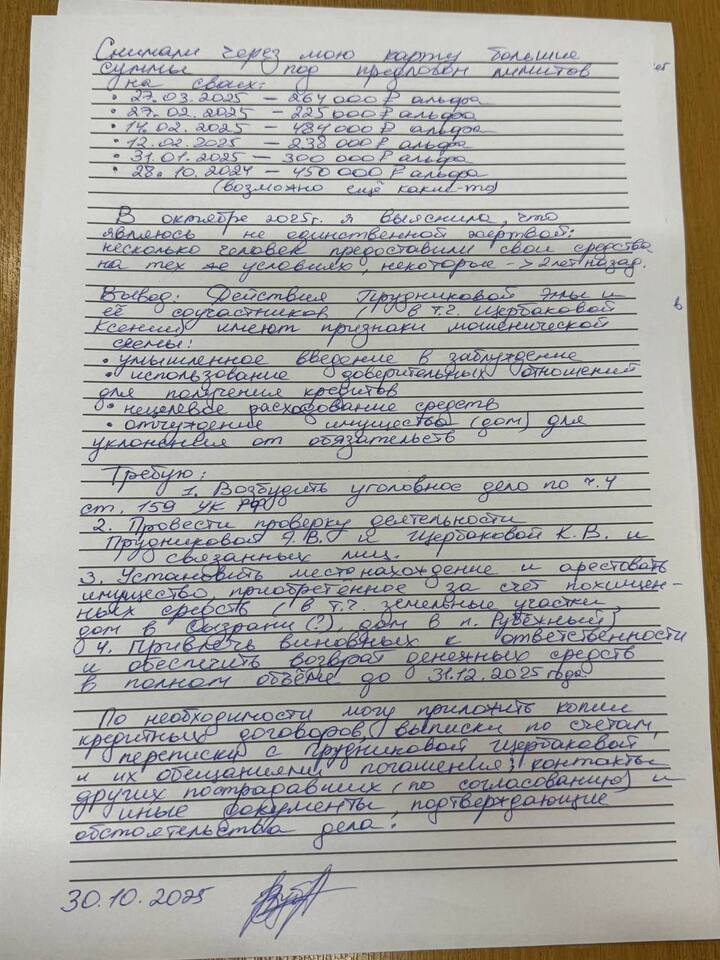 Снимали через мою карту большие
суммы под предлогом лимитов
на своих:
• 27.03.2025 — 264 000 ₽ альфа
• 27.02.2025 — 225 000 ₽ альфа
• 14.02.2025 — 484 000 ₽ альфа
• 12.02.2025 — 238 000 ₽ альфа
• 31.01.2025 — 300 000 ₽ альфа
• 28.10.2024 — 450 000 ₽ альфа
(возможно ещё какие-то)
В октябре 2025г. я выяснила, что
являюсь не единственной жертвой:
несколько человек предоставили свои средства
на тех же условиях, некоторые -> 2 лет назад.
Вывод: Действия Прудниковой Эммы и
её соучастников (в т.ч. Щербаковой
Ксении) имеют признаки мошеннической
схемы:
• умышленное введение в заблуждение
• использование доверительных отношений
для получения кредитов
• нецелевое расходование средств
• отчуждение имущества (дом) для
уклонения от обязательств
Требую:
1. Возбудить уголовное дело по ч.4
ст. 159 УК РФ
2. Провести проверку деятельности
Прудниковой Э.В. и Щербаковой К.В. и
связанных лиц.
3. Установить местонахождение и арестовать
имущество, приобретенное за счет похищен-
ных средств (в т.ч. земельные участки,
дом в Сызрани(?), дом в п. Рубежный)
4. Привлечь виновных к ответственности
и обеспечить возврат денежных средств
в полном объёме до 31.12.2025 года
По необходимости могу приложить копии
кредитных договоров, выписки по счетам,
переписки с Прудниковой Щербаковой
и их обещаниями погашения, контакты
других пострадавших (по согласованию) и
иные документы, подтверждающие
обстоятельства дела.
30.10.2025